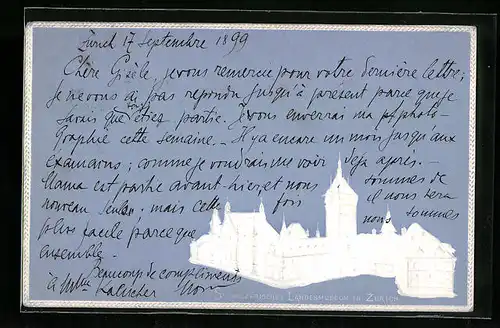 Zurich 17 Septembre 1899
Chère Gisèle, je vous remercie pour votre dernière lettre;
je ne vous ai pas repondu jusqu'à present parce que je
savais que vous étiez partie. Je vous enverrai ma photo-
graphie cette semaine. - Il y a encore un mois jusqu'aux
examens; comme je voudrais me voir déjà après. -
Mama est partie avant-hier et nous sommes de
nouveau seules. mais cette fois il nous sera
plus facile parce que nous sommes
ensemble.
Beaucoup de compliments
à Mme Kalischer
Schweizerisches Landesmuseum in Zürich